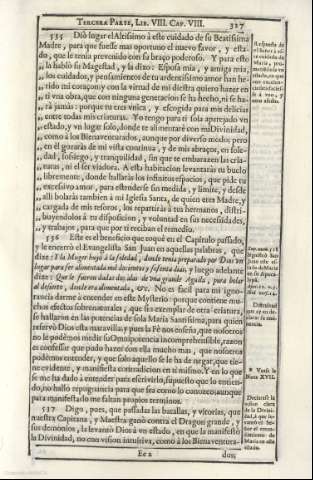 TERCERA PARTE, LIB. VIII. CAP. VIII. 327
535 Diò lugar el Altissimo à este cuidado de su Beatissima
Madre, para que fuesse mas oportuno el nuevo favor, y esta-
do, que le tenia prevenido con su braço poderoso. Y para esto
la habló su Magestad, y la dixo: Esposa mia, y amiga mia,
los cuidados, y pensamientos de tu ardentissimo amor han he-
rido mi coraçon, y con la virtud de mi diestra quiero hazer en
ti vna obra, que con ninguna generacion se ha hecho, ni se ha-
rà jamás: porque tu eres vnica, y escogida para mis delicias
entre todas mis criaturas. Yo tengo para ti sola aparejado vn
estado, y vn lugar solo, donde te alimentarè con mi Divinidad,
como à los Bienaventurados, aunque por diverso modo; pero
en él gozarás de mi vista continua, y de mis abraços, en sole-
dad, sossiego, y tranquilidad, sin que te embarazen las cria-
turas, ni el ser viadora. A esta habitacion levantarás tu buelo
libremente, donde hallarás los infinitos espacios, que pide tu
excessivo amor, para estenderse sin medida, y limite, y desde
allì bolarás tambien à mi Iglesia Santa, de quien eres Madre, y
cargada de mis tesoros, los repartirás à tus hermanos, distri-
buyendolos à tu disposicion, y voluntad en sus necessidades,
y trabajos, para que por ti reciban el remedio.
536 Este es el beneficio que toquè en el Capitulo passado,
y le encerrò el Evangelista San Juan en aquellas palabras, que
dize: Y la Muger huyò à la soledad, donde tenia preparado por Dios vn
lugar para ser alimentada mil docientos y sesenta dias, y luego adelante
dize: Que le fueron dadas dos alas de vna grande Aguila, para bolar
al desierto, donde era alimentada, &c. No es facil para mi igno-
rancia darme à entender en este Mysterio: porque contiene mu-
chos efectos sobrenaturales, que sin exemplar de otra criatura,
se hallaron en las potencias de sola Maria Santissima, para quien
reservò Dios esta maravilla; y pues la Fè nos enseña, que nosotros
no le podémos medir su Omnipotencia incomprehensible, razon
es confessar que pudo hazer con ella mucho mas, que nosotros
podémos entender, y que solo aquello se le ha de negar, que tie-
ne evidente, y manifiesta contradicion en si mismo. Y en lo que
se me ha dado à entender para escrivirlo, supuesto que lo entien-
do, no hallo repugnancia para que sea como lo conozco; aunque
para manifestarlo me faltan proprios terminos.
537 Digo, pues, que passadas las batallas, y vitorias, que
nuestra Capitana, y Maestra ganó contra el Dragon grande, y
sus demonios, la levantó Dios à vn estado, en que la manifestó
la Divinidad, no con vision intuitiva, como à los Bienaventura-
Ee 2 dos;
* Vease la
Nota XVII.